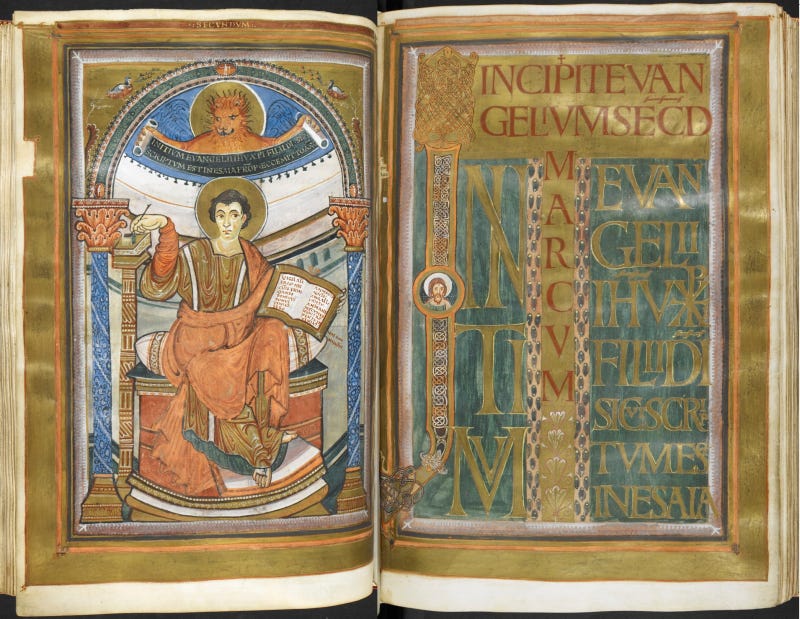 SECUNDUM
INITIUM EVANGELII IHU XPI FILII DI SIC
SCRIPTUM EST IN ESAIA PROF ECCE MITTO
INCIPIT EVAN
GELIVM SECD
MARCVM
INITIVM
EVAN
GELII
IHV XPI
FILII DI
SIC SCRIP
TVM ES
IN ESAIA